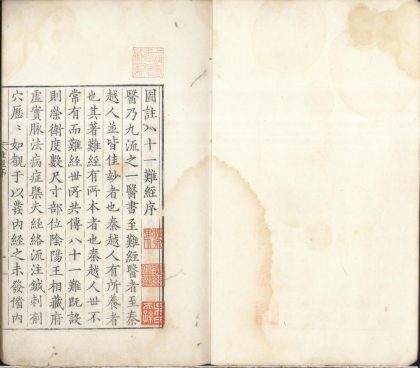 圖註八十一難經序
醫乃九流之一醫書至難經醫者至秦
越人並皆佳妙者也秦越人有所養者
也其著難經有所本者也秦越人世不
常有而難經世所共傳八十一難既談
則榮衛度數尺寸部位陰陽王相藏府
虛實脉法病症與夫經絡流注鍼刺俞
穴歷〻如觀于以發內經之未發偹內